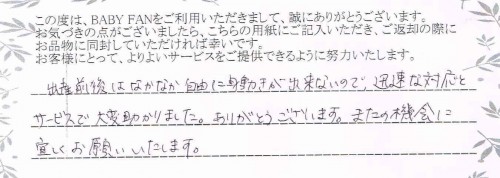 この度は、BABY FANをご利用いただきまして、誠にありがとうございます。
お気づきの点がございましたら、こちらの用紙にご記入いただき、ご返却の際に
お品物に同封していただければ幸いです。
お客様にとって、よりよいサービスをご提供できるように努力いたします。
出産前後はなかなか自由に身動きが出来ないので、迅速な対応と
サービスで大変助かりました。ありがとうございます。またの機会に
宜しくお願いいたします。